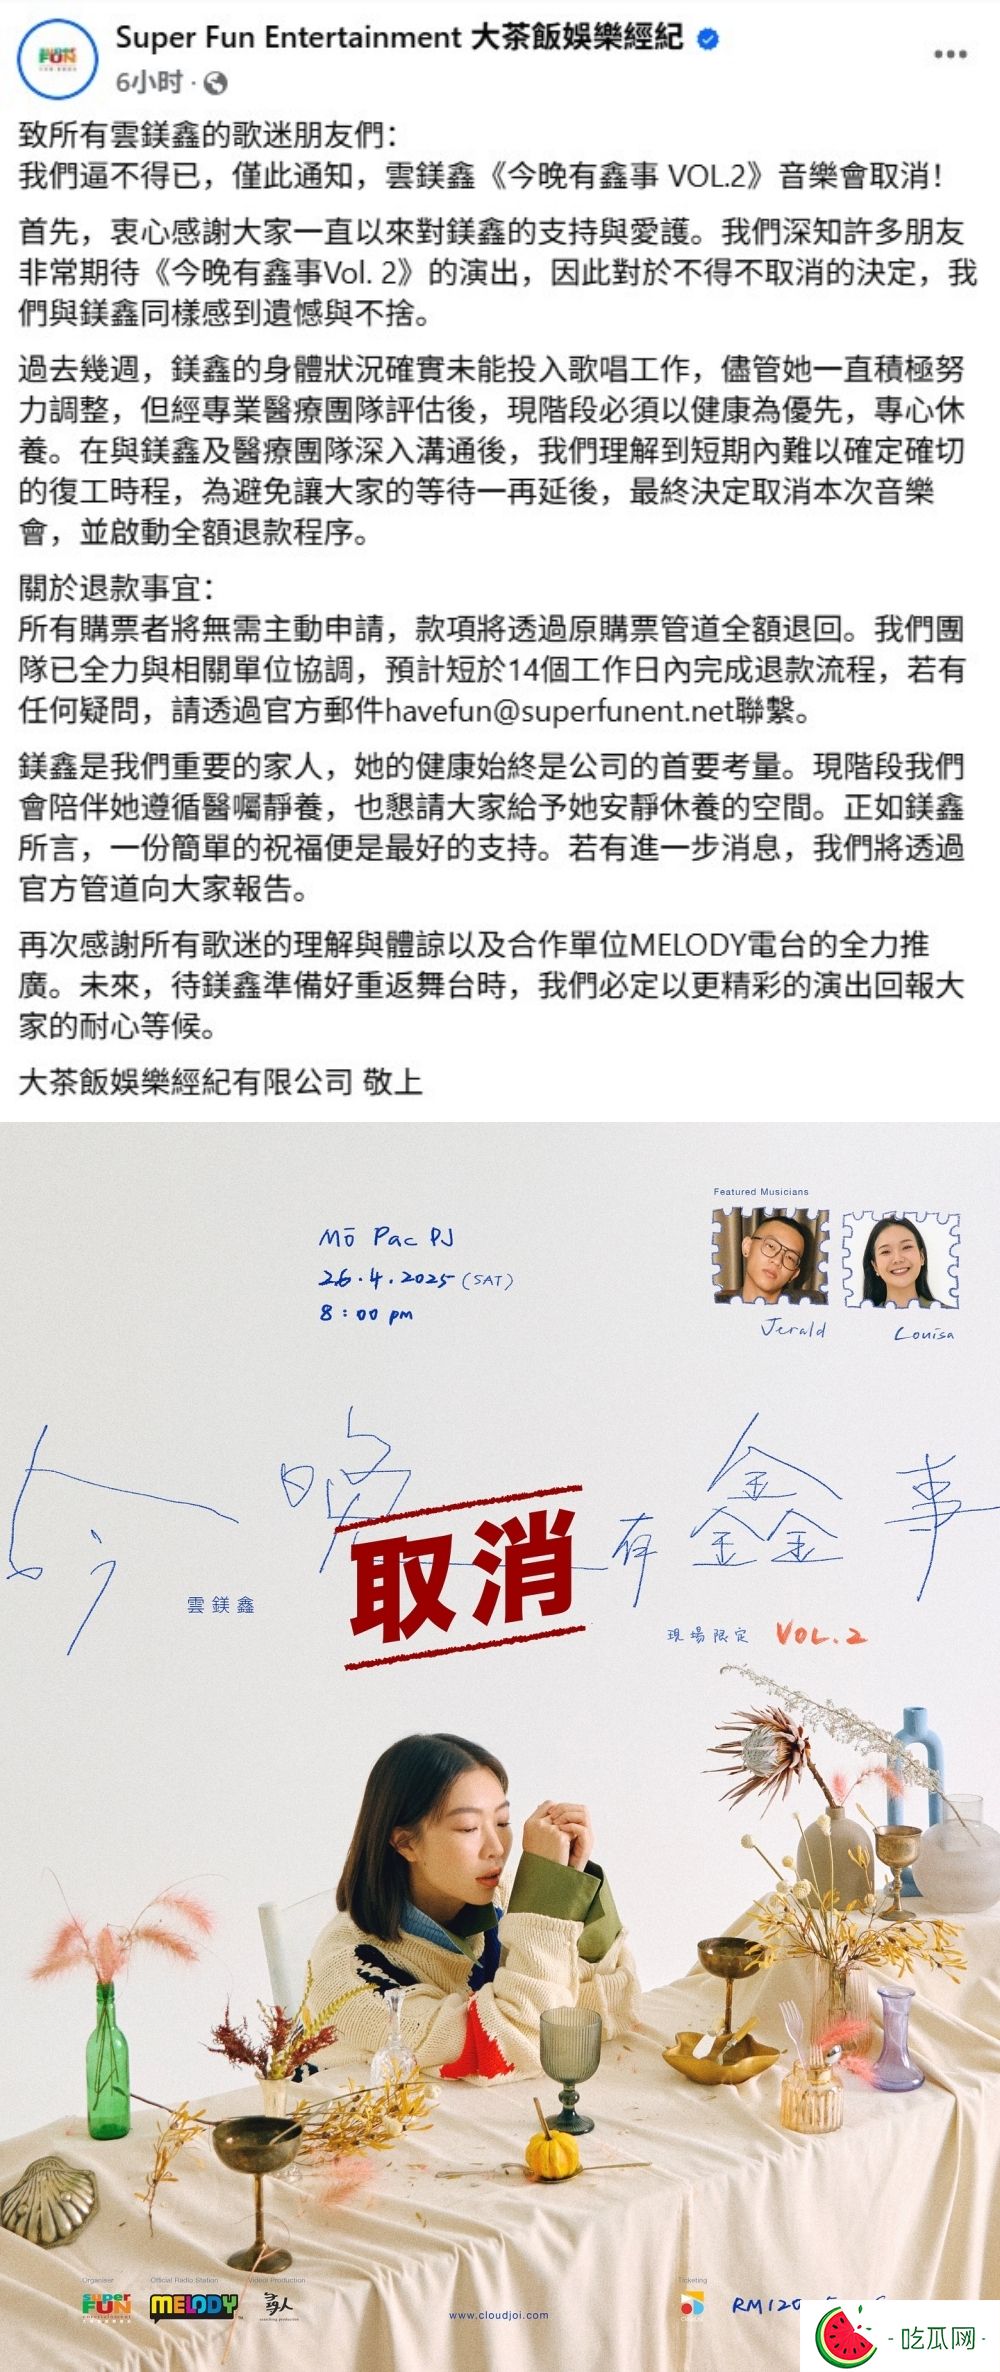 Super Fun Entertainment 大茶飯娛樂經紀
6小时
致所有雲鎂鑫的歌迷朋友們：
我們逼不得已，僅此通知，雲鎂鑫《今晚有鑫事 VOL.2》音樂會取消！
首先，衷心感謝大家一直以來對鎂鑫的支持與愛護。我們深知許多朋友
非常期待《今晚有鑫事Vol. 2》的演出，因此對於不得不取消的決定，我
們與鎂鑫同樣感到遺憾與不捨。
過去幾週，鎂鑫的身體狀況確實未能投入歌唱工作，儘管她一直積極努
力調整，但經專業醫療團隊評估後，現階段必須以健康為優先，專心休
養。在與鎂鑫及醫療團隊深入溝通後，我們理解到短期內難以確定確切
的復工時程，為避免讓大家的等待一再延後，最終決定取消本次音樂
會，並啟動全額退款程序。
關於退款事宜：
所有購票者將無需主動申請，款項將透過原購票管道全額退回。我們團
隊已全力與相關單位協調，預計短於14個工作日內完成退款流程，若有
任何疑問，請透過官方郵件havefun@superfunent.net聯繫。
鎂鑫是我們重要的家人，她的健康始終是公司的首要考量。現階段我們
會陪伴她遵循醫囑靜養，也懇請大家給予她安靜休養的空間。正如鎂鑫
所言，一份簡單的祝福便是最好的支持。若有進一步消息，我們將透過
官方管道向大家報告。
再次感謝所有歌迷的理解與體諒以及合作單位MELODY電台的全力推
廣。未來，待鎂鑫準備好重返舞台時，我們必定以更精彩的演出回報大
家的耐心等候。
大茶飯娛樂經紀有限公司 敬上
Featured Musicians
Mō Pac PJ
26.4.2025 (SAT)
8:00 pm
Jerald
Louisa
今晚有鑫事
取消
雲鎂鑫
現場限定 VOL.2
Organiser
Official Radio Station
Video Production
Ticketing
super FUN entertainment
MELODY
尋人
www.cloudjoi.com
RM120
吃瓜网